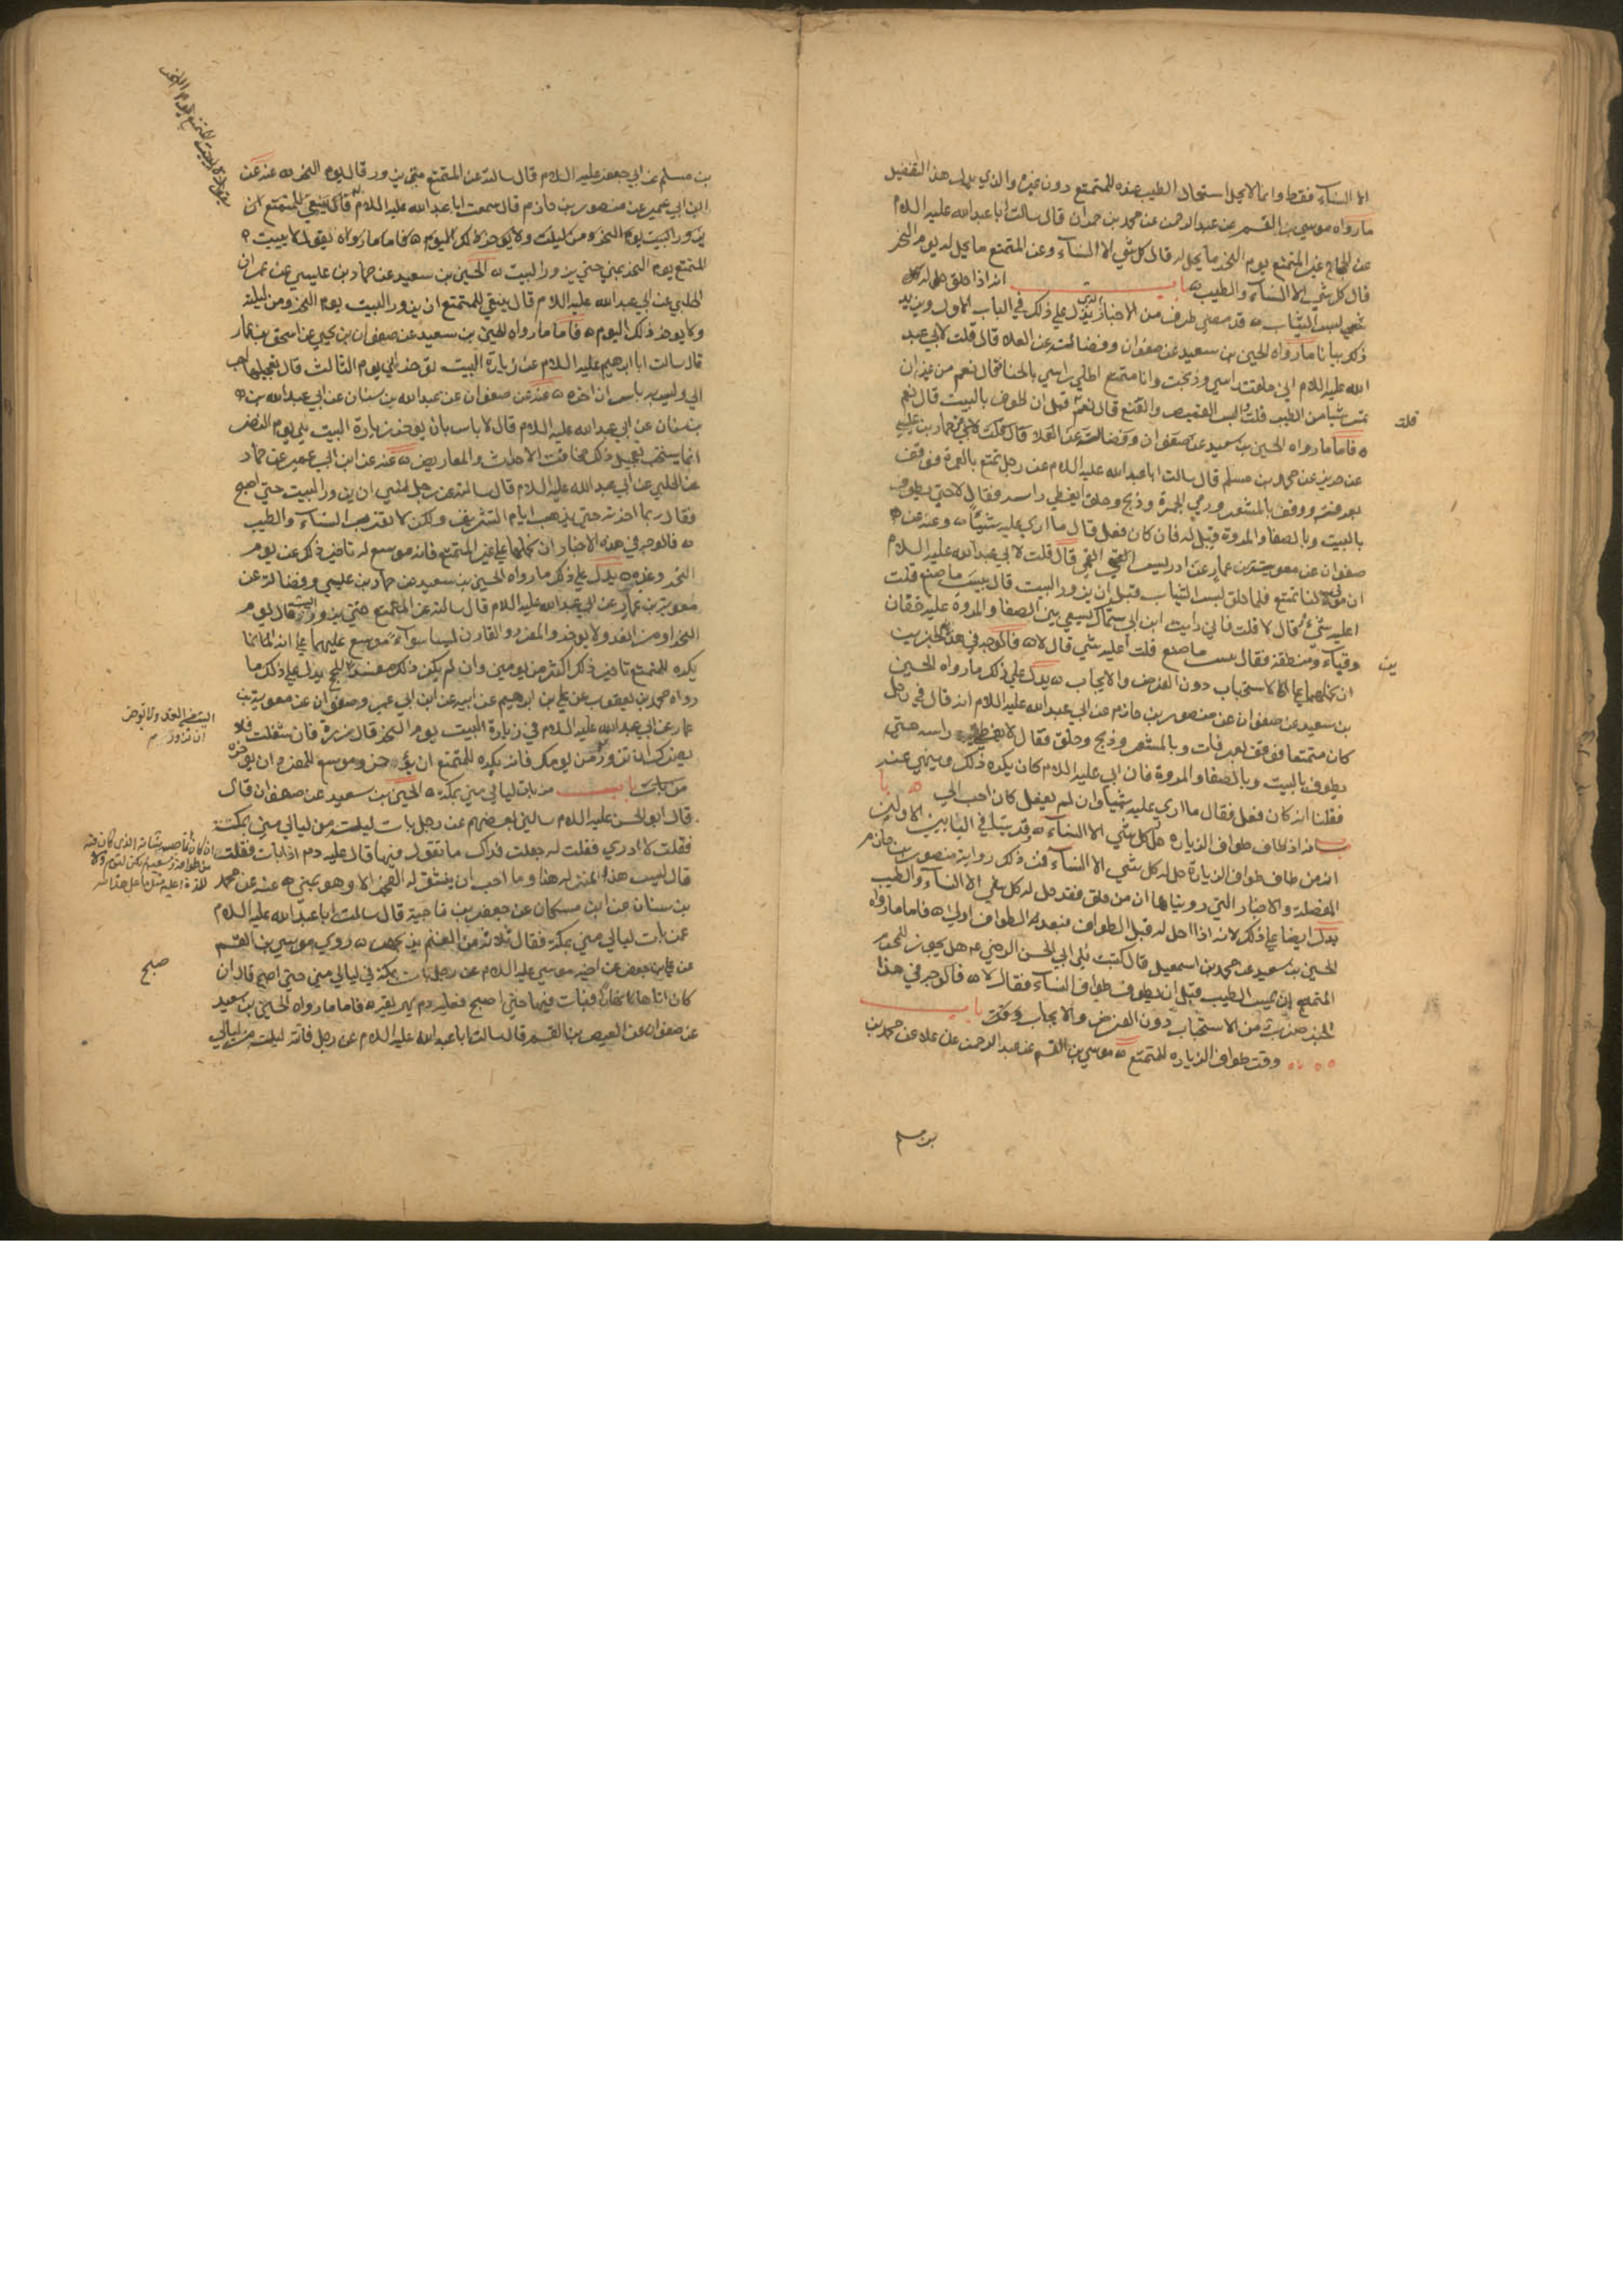 الا النساء فقط وانما لا يحل استعمال الطيب عنده للمتمتع دون غيره والذي يدل هذا التفصيل
ما رواه موسى بن القسم عن عبد الرحمن عن محمد بن حمران قال سالت ابا عبد الله عليه السلام
عن الحاج غير المتمتع يوم النحر ما يحل له قال كل شي الا النساء وعن المتمتع ما يحل له يوم النحر
قال كل شي الا النساء والطيب باب انه اذا حلق حل له كل
شي لبس الثياب قد مضى طرف من الاخبار يدل على ذلك في الباب الاول ويزيد
ذلك بيانا ما رواه الحسين بن سعيد عن صفوان وفضالة عن العلا قال قلت لابي عبد
الله عليه السلام اني حلقت راسي وذبحت وانا متمتع اطلي راسي بالحنا فقال نعم من غير ان
تمس شيا من الطيب قلت والبس القميص واتقنع قال نعم قبل ان اطوف بالبيت قال نعم
قلت
فاما ما رواه الحسين بن سعيد عن صفوان وفضالة عن العلا
عن حريز عن محمد بن مسلم قال سالت ابا عبد الله عليه السلام عن رجل تمتع بالعمرة فوقف
بعرفة ووقف بالمشعر ورمى الجمرة وذبح وحلق ايغطي راسه فقال لا حتى يطوف
بالبيت وبالصفا والمروة قيل له فان كان فعل قال ما ارى عليه شيئا وعنه عن
صفوان عن معوية بن عمار عن ادريس القمي قال قلت لابي عبد الله عليه السلام
ان مولى لنا تمتع فلما حلق لبس الثياب قبل ان يزور البيت قال بيس ما صنع قلت
اعليه شي قال لا قلت فاني رايت ابن ابي سماك يسعى بين الصفا والمروة عليه خفان
وقباء ومنطقة فقال بيس ما صنع قلت أعليه شي قال لا فالوجه في هذين الخبرين
ان نحملهما على الاستحباب دون الفرض والايجاب يدل على ذلك ما رواه الحسين
بن سعيد عن صفوان عن منصور بن حازم عن ابي عبد الله عليه السلام انه قال في رجل
كان متمتعا فوقف بعرفات وبالمشعر وذبح وحلق فقال لا يغطي راسه حتى
يطوف بالبيت وبالصفا والمروة فان ابي عليه السلام كان يكره ذلك وينهى عنه
فقلنا انه كان فعل فقال ما ارى عليه شيئا وان لم يفعل كان احب الي
باب انه اذا طاف طواف الزيارة حل كل شي الا النساء قد بينا في البابين الاولين
انه من طاف طواف الزيارة حل له كل شي الا النساء فمن ذلك رواية منصور بن حازم
المفصلة والاخبار التي رويناها ان من حلق فقد حل له كل شي الا النساء والطيب
يدل ايضا على ذلك لانه اذا احل له قبل الطواف فبعد الطواف اولى فاما ما رواه
الحسين بن سعيد عن محمد بن اسمعيل قال كتبت الى ابي الحسن الرضي ع هل يجوز للمحرم
المتمتع ان يمس الطيب قبل ان يطوف طواف النساء فقال لا فالوجه في هذا
الخبر ضرب من الاستحباب دون الفرض والايجاب باب
وقت طواف الزياره للمتمتع موسى بن القسم عن عبد الرحمن عن علاء عن محمد بن
بن مسلم
بن مسلم عن ابي جعفر عليه السلام قال سالته عن المتمتع متى يزور قال يوم النحر عنه عن
ابن ابي عمير عن منصور بن حازم قال سمعت ابا عبد الله عليه السلام قال ينبغي للمتمتع ان
يزور البيت يوم النحر ومن ليلته ولا يوخر ذلك اليوم فاما ما رواه يقول لا يبيت
المتمتع يوم النحر بمنى حتى يزور البيت الحسين بن سعيد عن حماد بن عيسى عن عمران
الحلبي عن ابي عبد الله عليه السلام قال ينبغي للمتمتع ان يزور البيت يوم النحر ومن ليلته
ولا يوخر ذلك اليوم فاما ما رواه الحسين بن سعيد عن صفوان بن يحيى عن اسحق بن عمار
قال سالت ابا ابرهيم عليه السلام عن زيارة البيت توخر الى يوم الثالث قال تعجيلها احب
الي وليس به باس ان اخره عنه عن صفوان عن عبد الله بن سنان عن ابي عبد الله
بن سنان عن ابي عبد الله عليه السلام قال لا باس بان يوخر زيارة البيت الى يوم النفر
انما يستحب تعجيل ذلك مخافة الاحداث والمعاريض عنه عن ابن ابي عمير عن حماد
عن الحلبي عن ابي عبد الله عليه السلام قال سالته عن رجل نسي ان يزور البيت حتى اصبح
فقال ربما اخرته حتى يذهب ايام التشريق ولكن لا تقرب النساء والطيب
فالوجه في هذه الاخبار ان نحملها على غير المتمتع فانه موسع له تاخير ذلك عن يوم
النحر وغيره يدل على ذلك ما رواه الحسين بن سعيد عن حماد بن عيسى وفضالة عن
معوية بن عمار عن ابي عبد الله عليه السلام قال سالته عن المتمتع متى يزور البيت قال يوم
النحر او من الغد ولا يوخر والمفرد والقارن ليسا سواء موسع عليهما على انه انما
يكره للمتمتع تاخير ذلك اكثر من يومين وان لم يكن ذلك مفسدا للحج يدل على ذلك ما
رواه محمد بن يعقوب عن علي بن ابرهيم عن ابيه عن ابن ابي عمير وصفوان عن معوية بن
عمار عن ابي عبد الله عليه السلام في زيارة البيت يوم النحر قال زره فان شغلت فلا
يضرك ان تزور من يومك فانه يكره للمتمتع ان يوخر وموسع للمفرد ان يوخره
باب من بات ليالي منى بمكة الحسين بن سعيد عن صفوان قال
قال ابو الحسن عليه السلام سالني بعضهم عن رجل بات ليلة من ليالي منى بمكة
فقلت لا ادري فقلت له جعلت فداك ما تقول فيها قال عليه دم اذا بات فقلت
قال ليس هذا بمنزلة هذا وما احب ان ينشق له الفجر الا وهو بمنى عنه عن محمد
بن سنان عن ابن مسكان عن جعفر بن ناجية قال سالت ابا عبد الله عليه السلام
عمن بات ليالي منى بمكة فقال ثلاثة من الغنم يذبحهن روى موسى بن القسم
عن علي بن جعفر عن اخيه موسى عليه السلام عن رجل بات بمكة في ليالي منى حتى اصبح قال ان
كان اتاها نهارا فبات فيها حتى اصبح فعليه دم يهريقه فاما ما رواه الحسين بن سعيد
عن صفوان عن العيص بن القسم قال سالت ابا عبد الله عليه السلام عن رجل فاتته ليلة من ليالي
صبح